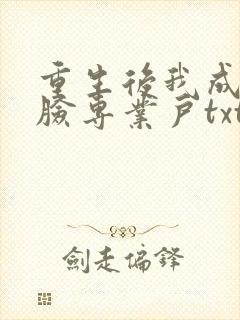 重生後我成
臉專業戶txt
劍走偏鋒